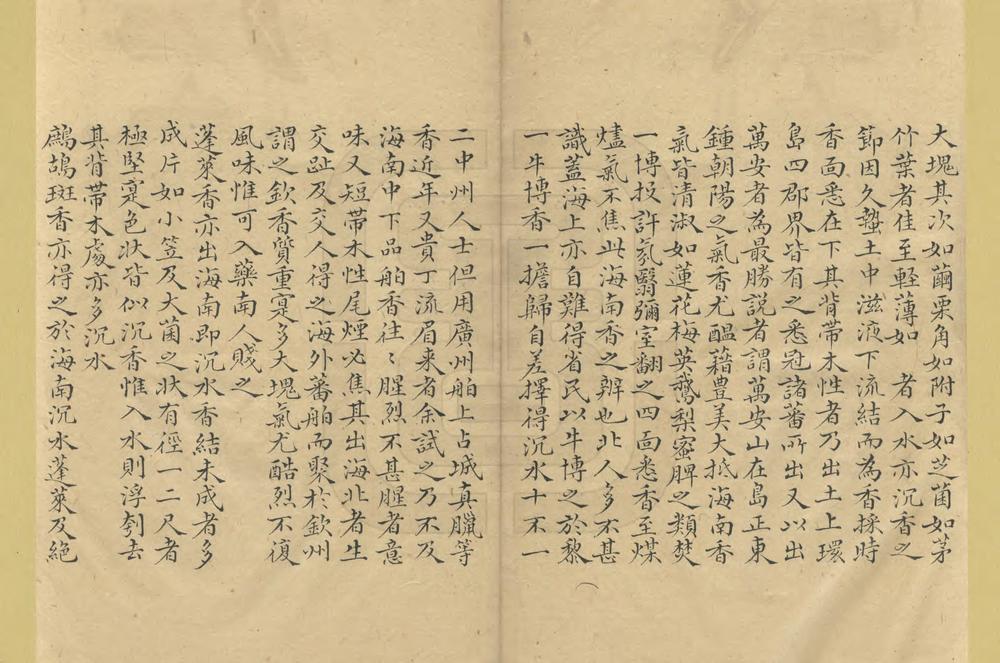 大塊其次如繭栗角如附子如芝菌如茅
竹葉者佳至輕薄如　者入水亦沉香之
節因久蟄土中滋液下流結而為香採時
香面悉在下其背帶木性者乃出土上環
島四郡界皆有之悉冠諸蕃所出又以出
萬安者為最勝説者謂萬安山在島正東
鍾朝陽之氣香尤醞藉豊美大抵海南香
氣皆清淑如蓮花梅英鵞梨蜜脾之類焚
一博投許氛翳彌室翻之四面悉香至煤
燼氣不焦此海南香之辨也北人多不甚
識蓋海上亦自難得省民以牛博之於黎
一牛博香一擔歸自差擇得沉水十不一
二中州人士但用廣州舶上占城真臘等
香近年又貴丁流眉来者余試之乃不及
海南中下品舶香往〻腥烈不甚腥者意
味又短帶木性尾煙必焦其出海北者生
交趾及交人得之海外蕃舶而聚於欽州
謂之欽香質重寔多大塊氣尤酷烈不復
風味惟可入藥南人賤之
蓬萊香亦出海南即沉水香結未成者多
成片如小笠及大菌之狀有徑一二尺者
極堅寔色状皆似沉香惟入水則浮刳去
其背帶木處亦多沉水
鷓鴣斑香亦得之於海南沉水蓬萊及絶